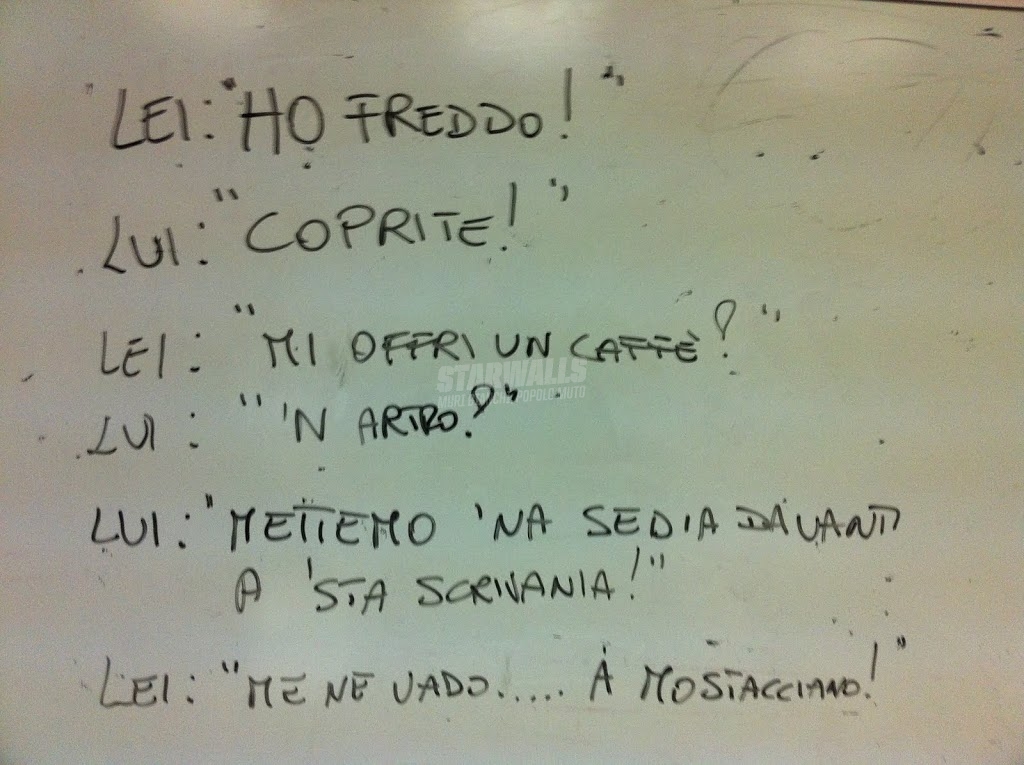 "LEI: "HO FREDDO!"
LUI: "COPRITE!"
LEI: "MI OFFRI UN CAFFÈ?"
STARWALLS
MURI POPOLO MUTO
LUI: "'N ARTRO?"
LUI: "METTEMO 'NA SEDIA DAVANTI
A 'STA SCRIVANIA!"
LEI: "ME NE VADO..... A MOSTACCIANO!"